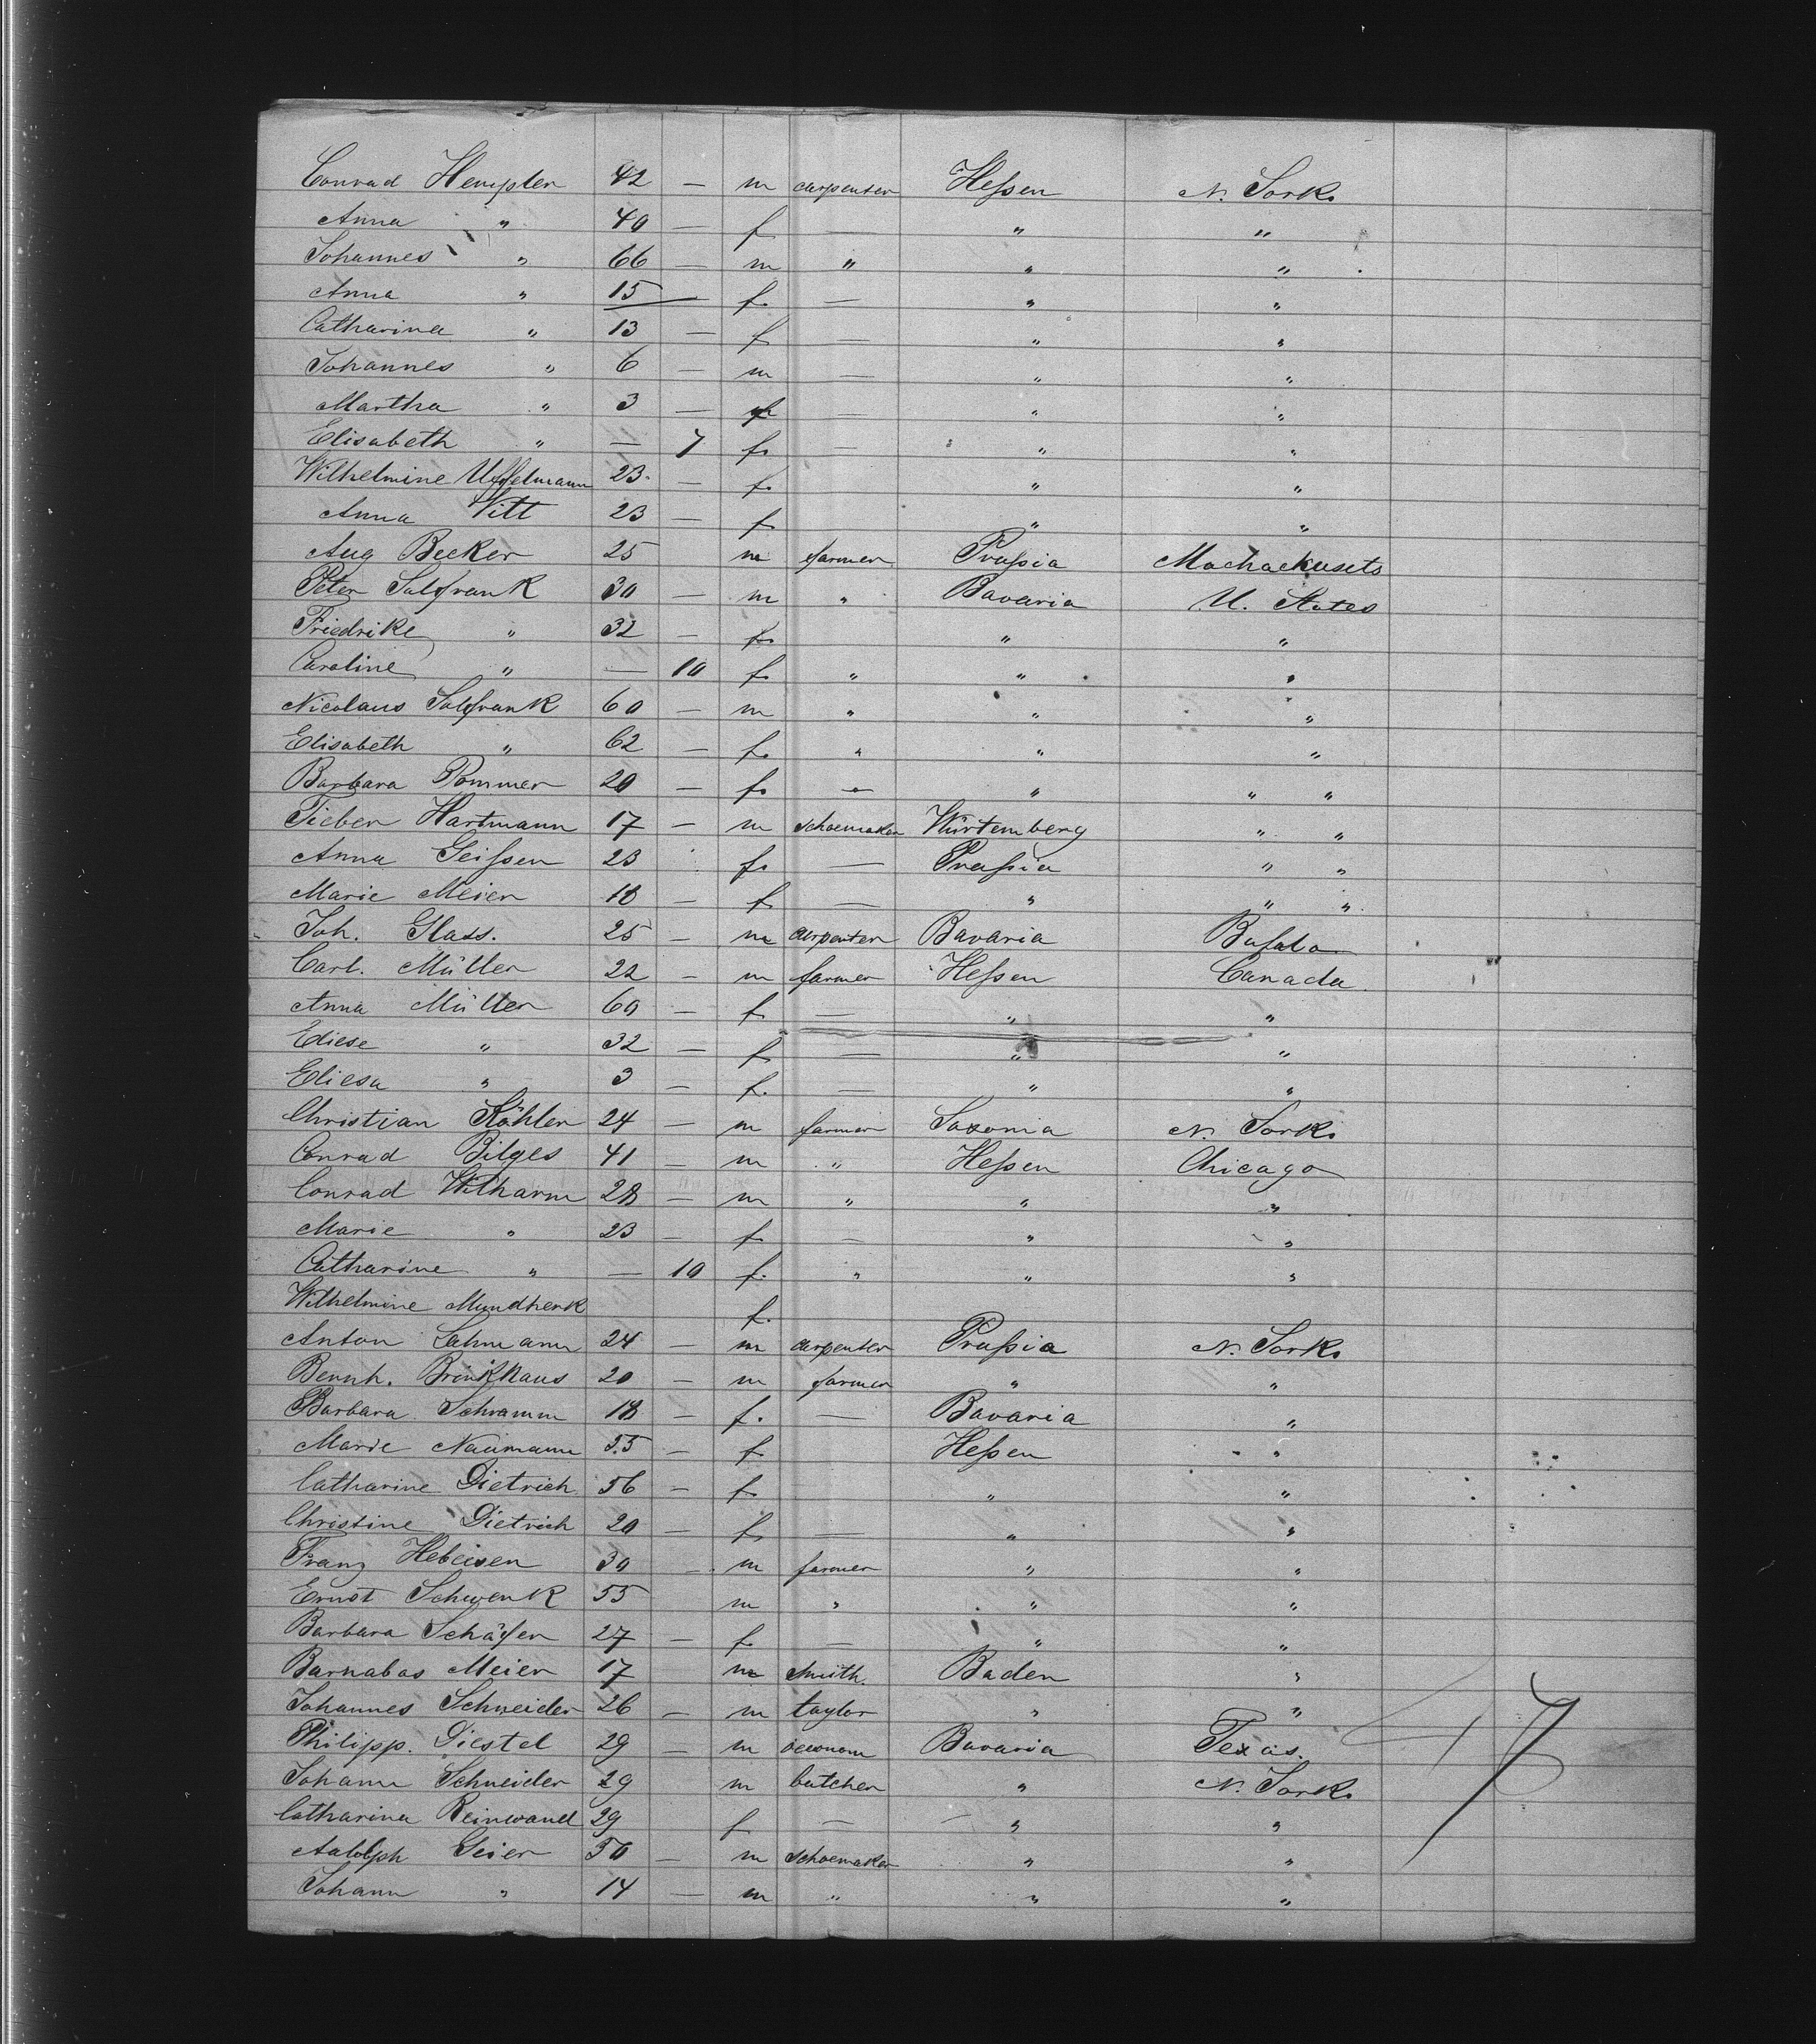 Conrad Hempler 42 — m carpenter Heſsen N. York
Anna " 40 — f — " "
Johannes " 66 — m " " "
Anna " 15 — f. — " "
Catharina " 13 — f — " "
Johannes " 6 — m — " "
Martha " 3 — f — " "
Elisabeth " — 7 f. — " "
Wilhelmine Uffelmann 23 — f. " "
Anna Vitt 23 — f " "
Aug Becker 25 m farmer Pruſsia Machachusets
Peter Salfrank 30 — m " Bavaria U. States
Friedrike " 32 — f. " "
Caroline " — 10 f. " " "
Nicolaus Salfrank 60 — m " " "
Elisabeth " 62 — f. " " "
Barbara Pommer 20 — f. — " " "
Tieber Hartmann 17 — m schoemaker Würtemberg " "
Anna Geiſsen 23 f. — Pruſsia " "
Marie Meier 18 — f — " " "
Joh. Glass. 25 — m carpenter Bavaria Bufalo
Carl. Müller 22 — m farmer Heſsen Canada
Anna Müller 60 — f — " "
Eliese " 32 — f — " "
Eliesa " 3 — f. — " "
Christian Köhler 24 — m farmer Saxonia N. York
Conrad Bilges 41 — m " Heſsen Chicago
Conrad Witharm 28 — m " " "
Marie " 23 — f — " "
Catharine " — 10 f. " " "
Wilhelmine Mundhenk f.
Anton Lehmann 24 — m carpenter Pruſsia N. York
Bernh. Brinkhaus 20 — m farmer " "
Barbara Schramm 18 — f. — Bavaria "
Marie Naumann 55 — f Heſsen "
Catharine Dietrich 56 — f. " "
Christine Dietrich 20 — f — " "
Franz Hebeisen 30 — m farmer " "
Ernst Schwenk 55 m " " "
Barbara Schäfer 27 — f. — " "
Barnabas Meier 17 m smith. Baden "
Johannes Schneider 26 — m taylor " "
Philipp. Diestel 29 — m oeconom Bavaria Texas.
Johann Schneider 29 m butcher " N. York
Catharina Reinwand 29 f — " "
Aadolph Geier 50 — m schoemaker " "
Johann " 14 — m " " "